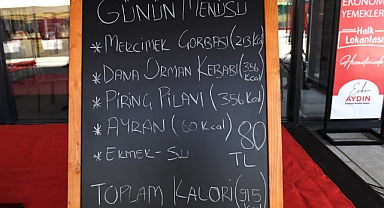 GÜNÜN MENÜSÜ
* MERCİMEK ÇORBASI (213 Kcal)
* DANA ORMAN KEBABI (356 Kcal)
* PİRİNÇ PİLAVI (356 Kcal)
* AYRAN (60 Kcal) 80 TL
* EKMEK-SU
TOPLAM KALORİ (915 Kcal)
EKONOMİ
YEMEKLER
Halk
Lokantası
Hizmetinizde
Erkan
AYDIN